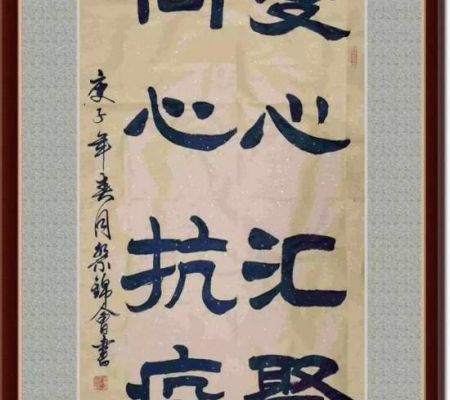 爱心汇聚
同心抗疫
庚子年春月黎锦会书